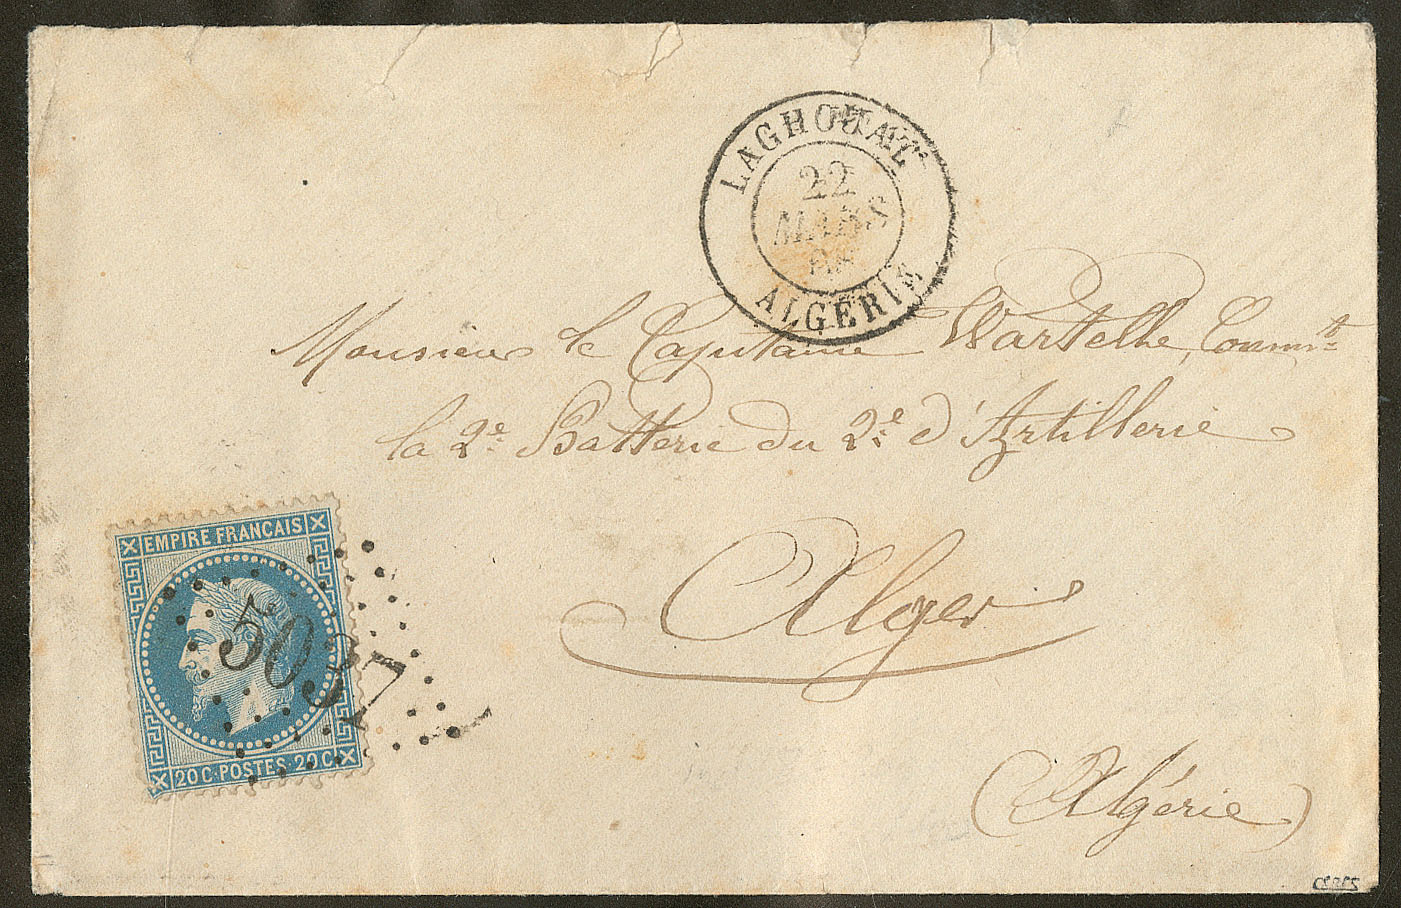 LAGHOUAT
22
MARS
68
ALGÉRIE
Monsieur le Capitaine Wartelle, Comm.t
la 2e Batterie du 2e d'Artillerie
Alger
(Algérie)
EMPIRE FRANCAIS
5037
20 C · POSTES · 20 C